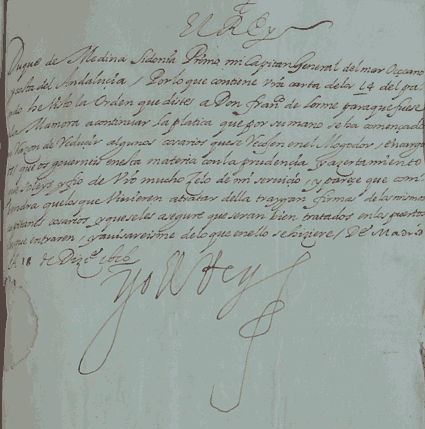 El Rey
Duque de Medina Sidonia Primo mi Capitan General del mar Oceano
y costa del Andalucia / Por lo que contiene vra carta de los 14 del pa
do he visto la Orden que distes a Don fran.co de para que fuese
la Mamora a continuar la platica que por su mano se ha començado
Razon de Reduçir algunos cosarios que Resiben en el Mogador, y encargo
os que governeis en esta materia con la prudencia y
que soleys y fio de Vro mucho zelo de mi servicio, y pareçe que con
vendra que los que Vinieren a tratar della traygan firmas de los mismos
capitanes cosarios, y que se les asegure que seran bien tratados en los puertos
que entraren, y avisareisme de lo que en ello se hiziere / De Madrid
18 de Diz.e
Yo el Rey